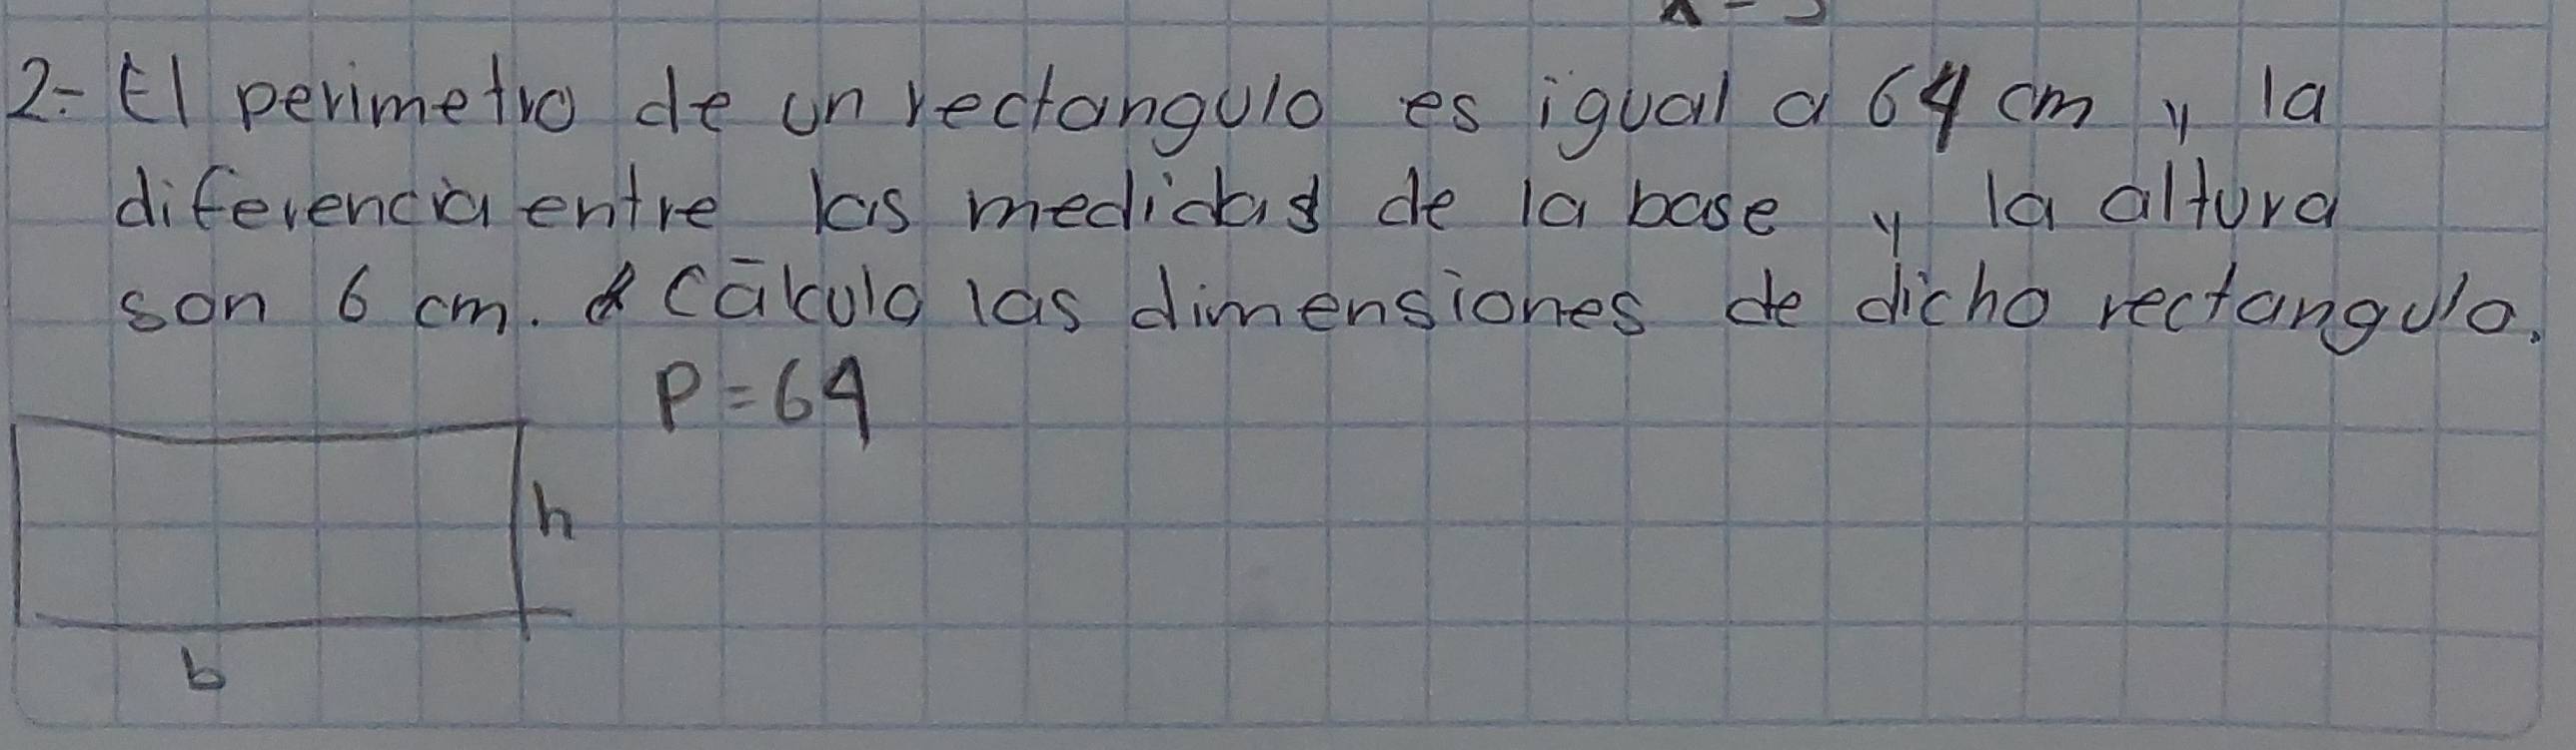 2.- El perimetro de un rectangulo es igual a 64 cm y la
diferencia entre las medidas de la base y la altura
son 6 cm. Cálculo las dimensiones de dicho rectangulo.
P=64
h
b